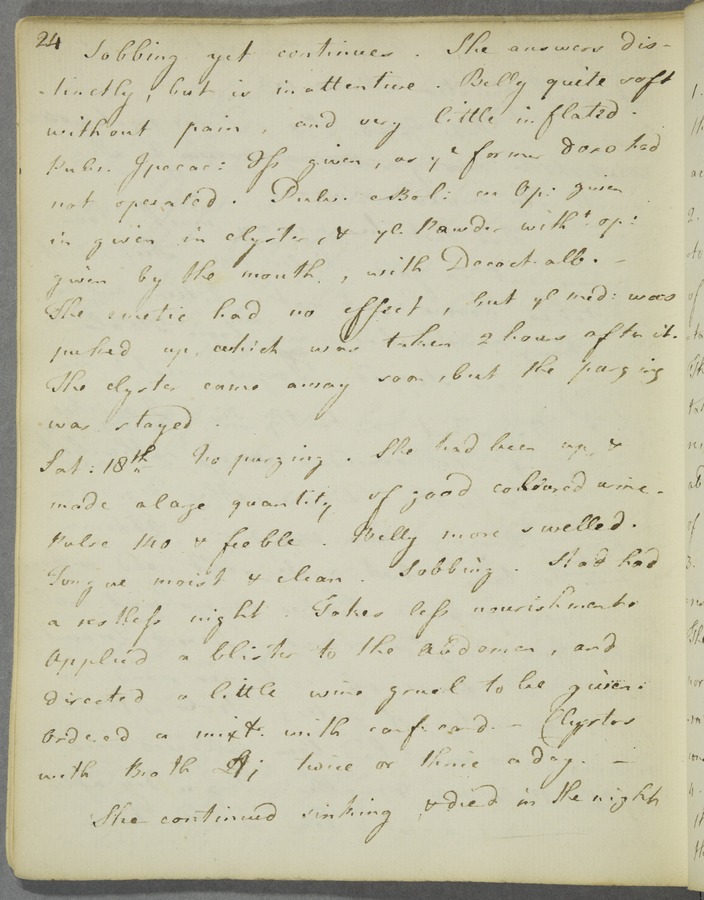 24
Sobbing yet continues. She answers dis-
-tinctly, but is inattentive. Belly quite soft
without pain, and very little inflated.
Pulv. Ipecac: ℈ss given, as yᵉ former dose had
not operated. Pulv. e Bol: cu Op: given
in given in clyster, & yᵉ Powder witht. op:
given by the mouth, with Decoct. alb. -
The emetic had no effect, but yᵉ med: was
puked up, which was taken 2 hours after it.
The clyster came away soon, but the purging
was stayed.
Sat: 18th No purging. She had been up, &
made a large quantity of good coloured urine.
Pulse 140 & feeble. Belly more swelled.
Tongue moist & clean. Sobbing. Had had
a restless night. Takes less nourishment.
Applied a blister to the Abdomen, and
directed a little wine gruel to be given.
Ordered a mixt. with conf. card. - Clyster
with Broth twice or thrice a day. -
She continued sinking & died in the night